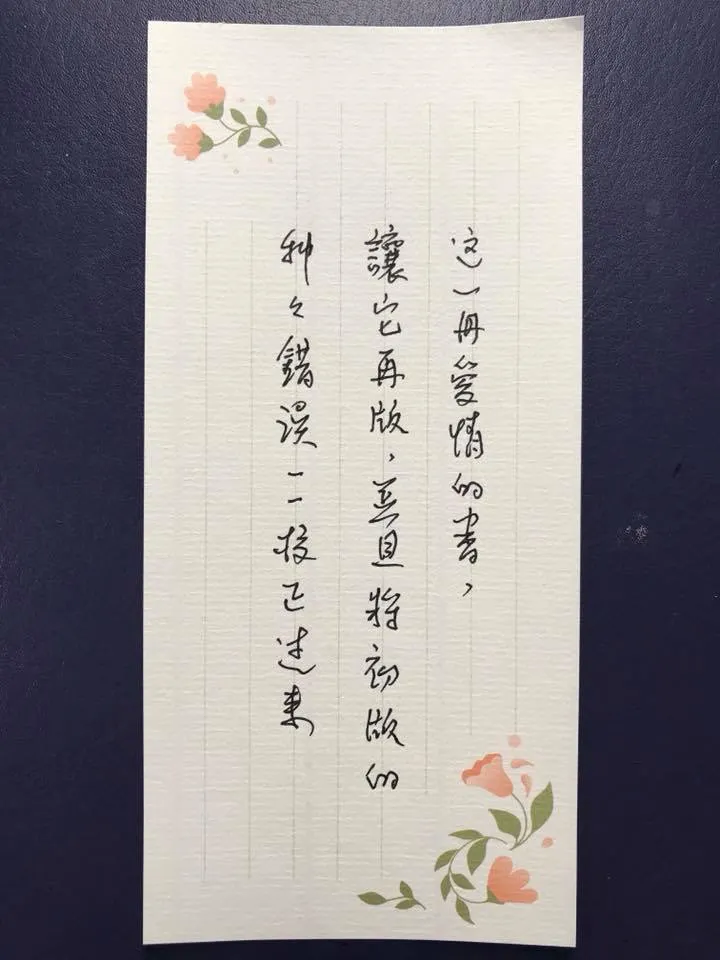 这一冊愛情的書，
讓它再版，並且將初版的
种々錯誤一一校正過來